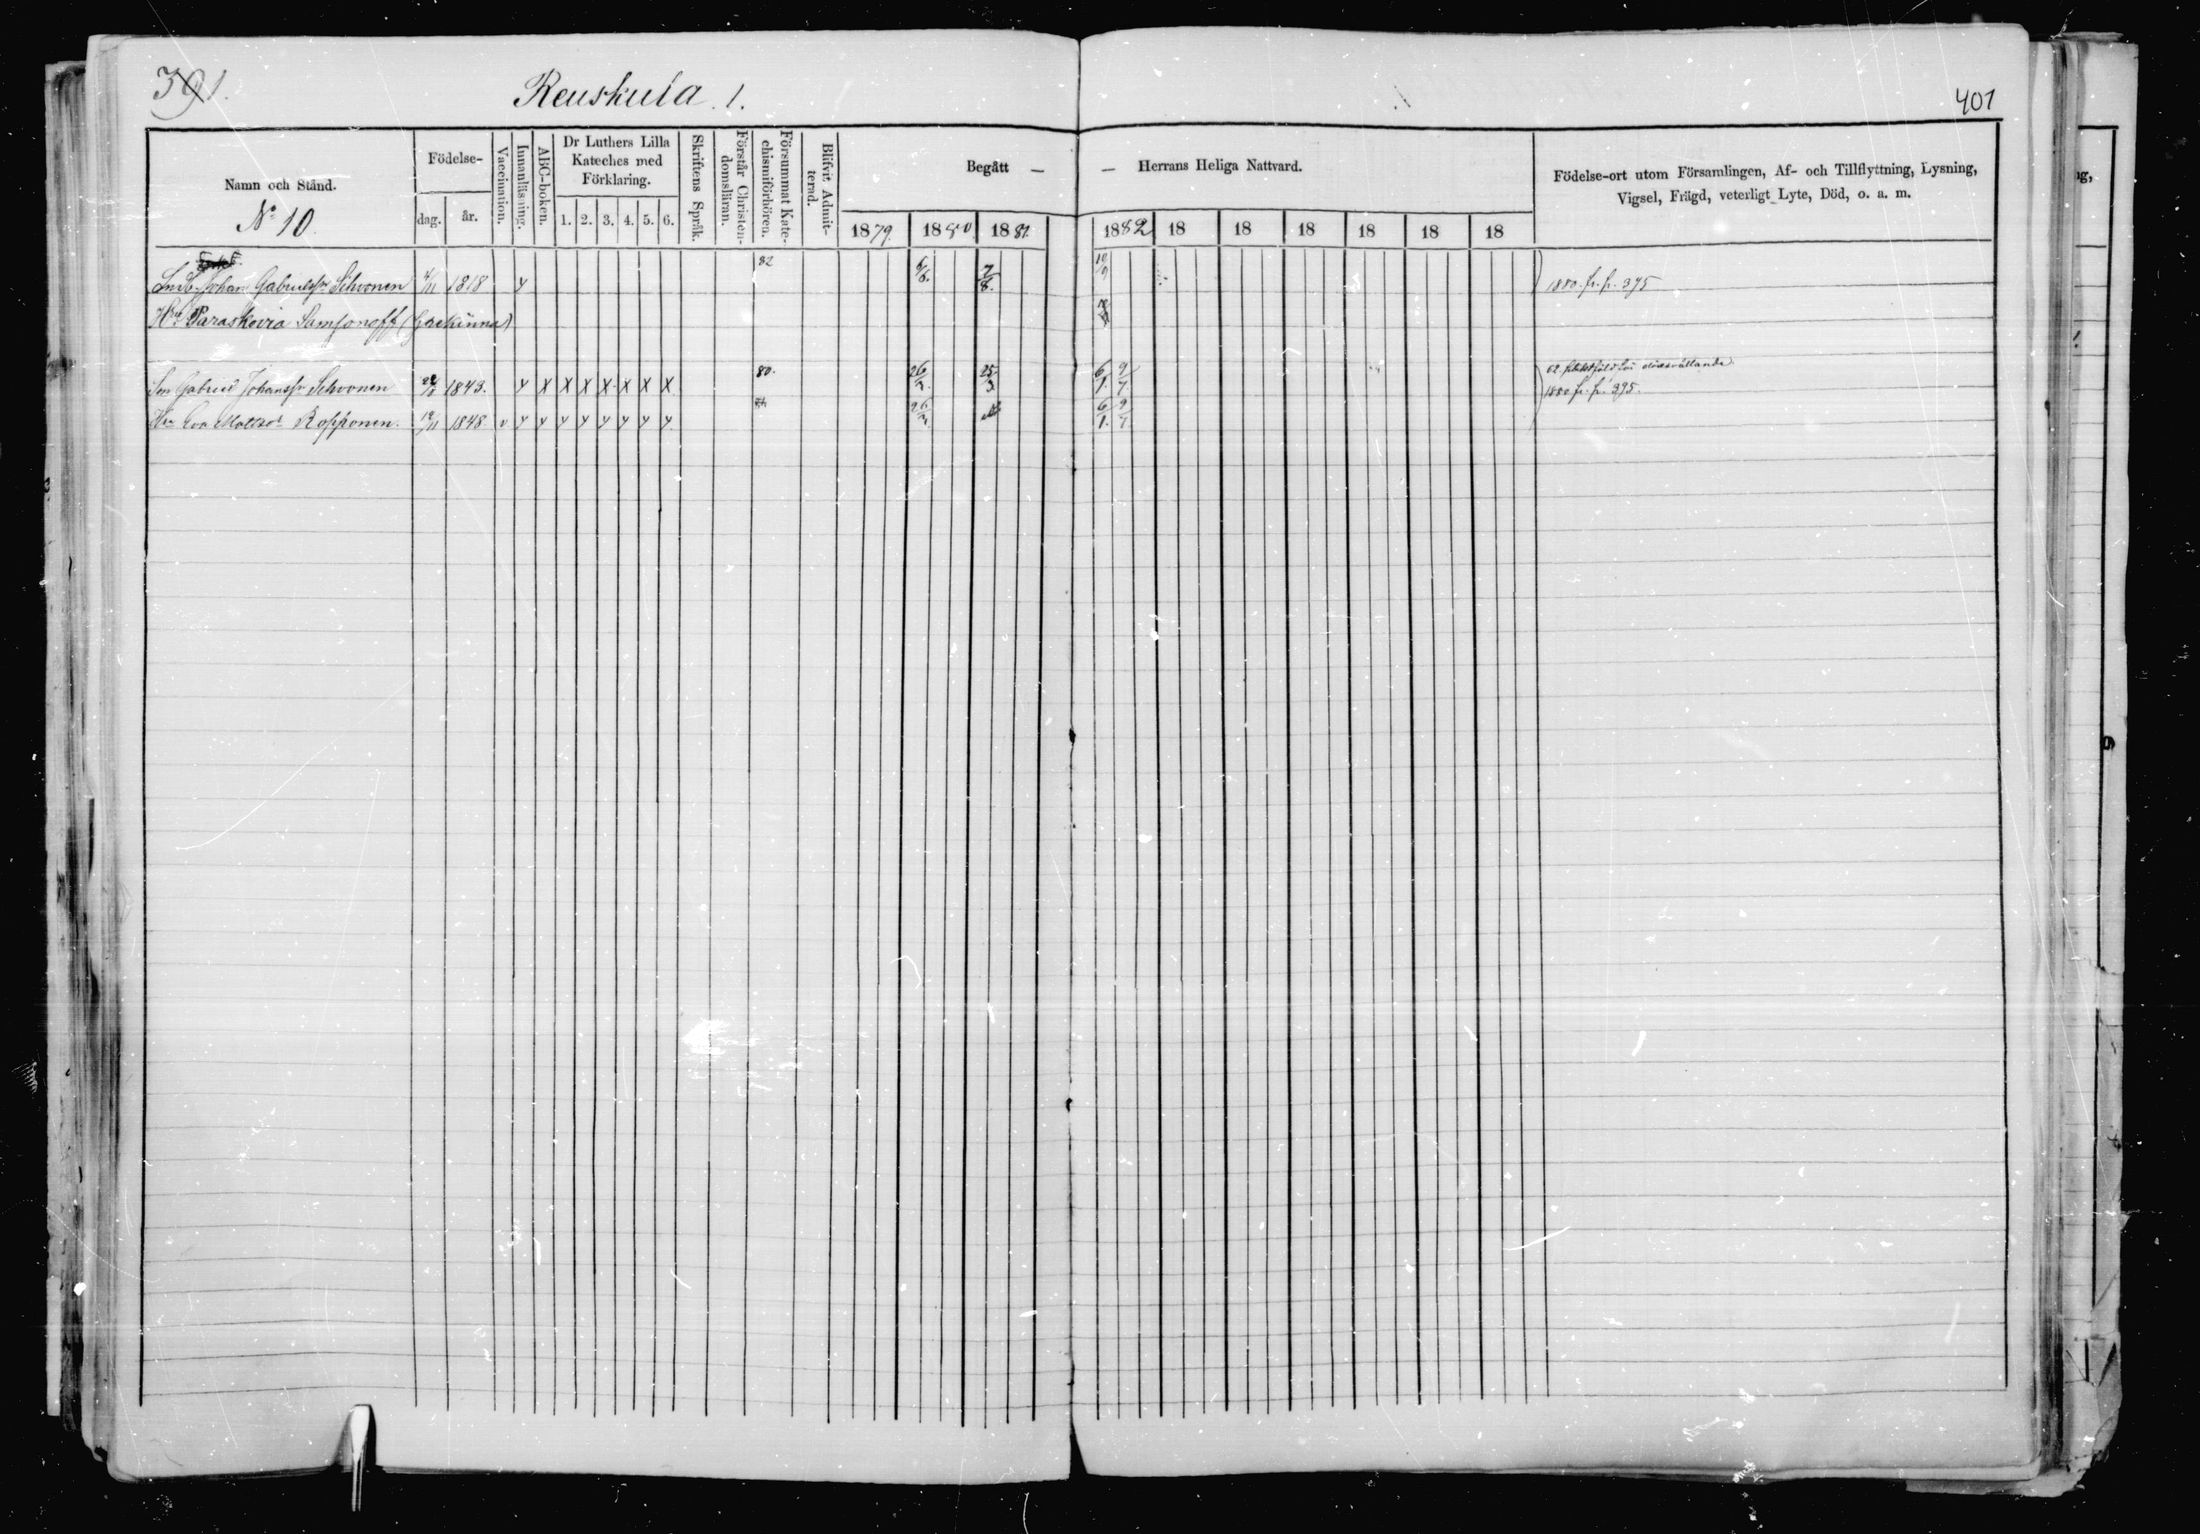 391.
Reuskula. 1.
401
Namn och Stånd.
No 10.
Födelse-
dag.
år.
Vaccination.
Innanläsning.
ABC-boken.
Dr Luthers Lilla
Kateches med
Förklaring.
1. 2. 3. 4. 5. 6.
Skriftens Språk.
Förstår Christen-
domsläran.
Försummat Kate-
chismiförhören.
Blifvit Admit-
terad.
Begått —
— Herrans Heliga Nattvard.
1879. 1880 1881. 1882 18 18 18 18 18 18
Födelse-ort utom Församlingen, Af- och Tillflyttning, Lysning,
Vigsel, Frägd, veterligt Lyte, Död, o. a. m.
Johan Gabrielsson Silvonen 4/11 1818 y 82 7/8. 10/9 1880. fr. p. 395
Hru Paraskovia Samsonoff (Grekinna)
Son Gabriel Johansson Silvonen 1843. y X X X X X X X 80. 26/2. 25/3 6/1. 9/7 1880 fr. p. 395.
Hru Eva Mattsdr Ropponen. 19/11 1848 v y y y y y y y y 26/2 6/1. 9/7